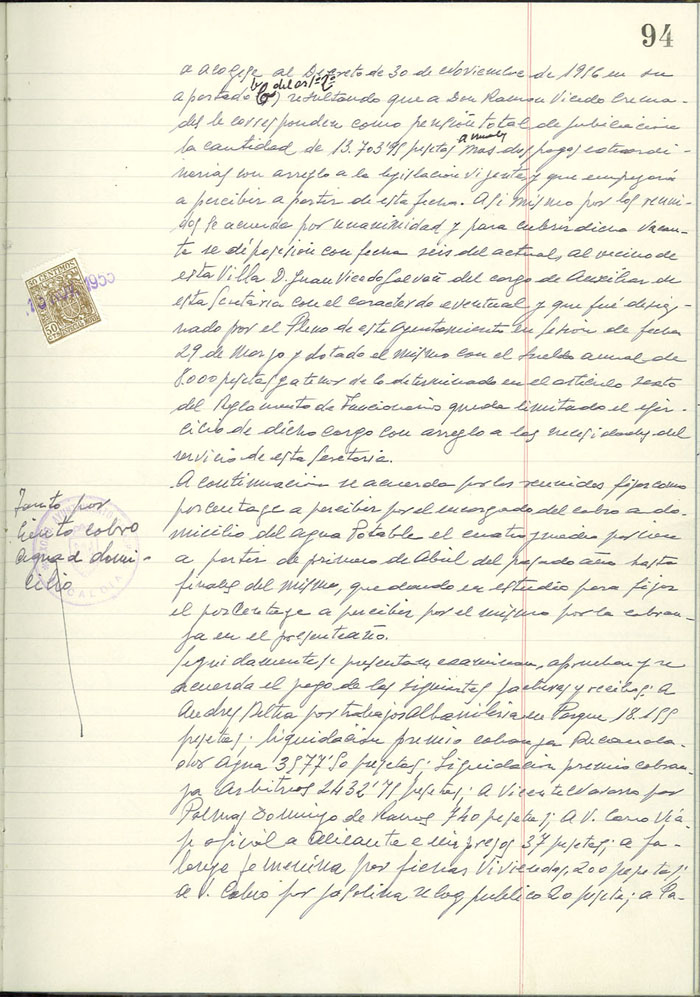 94
a acogerse al Decreto de 30 de Noviembre de 1956 en su
b) del artº 1º
apartado resultando que a Don Ramon Vicedo Crema-
des le corresponden como pensión total de jubilacion
anuales
la cantidad de 13.703'95 pesetas mas dos pagas extraordi-
narias con arreglo a la legislacion vigente y que empezará
a percibir a partir de esta fecha. Asi mismo por los reuni-
dos se acuerda por unanimidad y para cubrir dicha vacan-
te se dé posesión con fecha seis del actual, al vecino de
esta Villa D. Juan Vicedo Galvañ del cargo de Auxiliar de
esta Secretaria con el caracter de eventual y que fué desig-
nado por el Pleno de este Ayuntamiento en sesion de fecha
29 de Marzo y dotado el mismo con el sueldo anual de
8.000 pesetas y a tenor de lo determinado en el articulo sexto
del Reglamento de Funcionarios queda limitado el ejer-
cicio de dicho cargo con arreglo a las necesidades del
servicio de esta Secretaria.
A continuacion se acuerda por los reunidos fijar como
porcentage a percibir por el encargado del cobro a do-
micilio del agua Potable el cuatro y medio por cien
a partir de primero de Abril del pasado año hasta
finales del mismo, quedando en estudio para fijar
el porcentage a percibir por el mismo por la cobran-
za en el presente año.
Seguidamente se presentan, examinan, aprueban y se
acuerda el pago de las siguientes facturas y recibos: A
Andres por trabajos Albañileria en Parque 18.155
pesetas; liquidación premio cobranza Recauda-
dor Agua 3977'50 pesetas; Liquidacion premio cobran-
za arbitrios 2432'75 pesetas; A Vicente Navarro por
Palmas Domingo de Ramos 740 pesetas; A V. Cano Via-
je oficial a Alicante e impresos 37 pesetas; a Fa-
lange femenina por fichas Viviendas, 200 pesetas;
a V. Calvo por gasolina reloj publico 20 pesetas; a Pa-
Tanto por
Ciento cobro
Agua a domi-
cilio
50 CENTIMOS
50
ALCALDIA